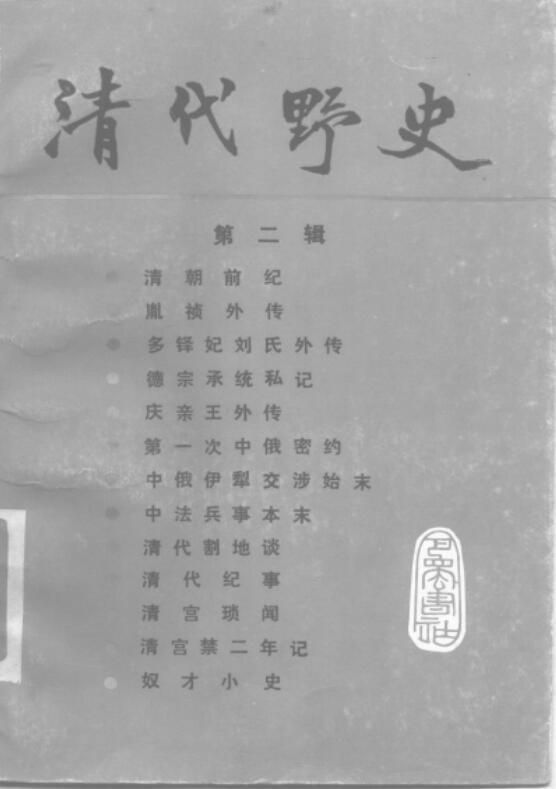 清代野史
第二辑
清朝前纪
胤祯外传
多铎妃刘氏外传
德宗承统私记
庆亲王外传
第一次中俄密约
中俄伊犁交涉始末
中法兵事本末
清代割地谈
清代纪事
清宫琐闻
清宫禁二年记
奴才小史
巴蜀书社